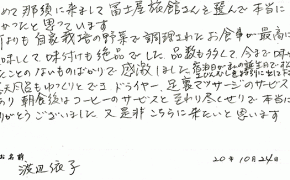 めて那須に来まして冨士屋旅館さんを選んで本当に
かったと思っています
よりも自家栽培の野菜で調理されたお食事が最高に
味しくて味付けも絶品でした 品数も多くて今まで味
たことのないものばかりで感激しました
天風呂もゆっくりとでき ドライヤー、足裏マッサージのサービス
あり 朝食後はコーヒーのサービスと至れり尽くせりで本当に
がとうございました 又是非こちらに来たいと思います
お名前
渡辺依子
20年10月24日